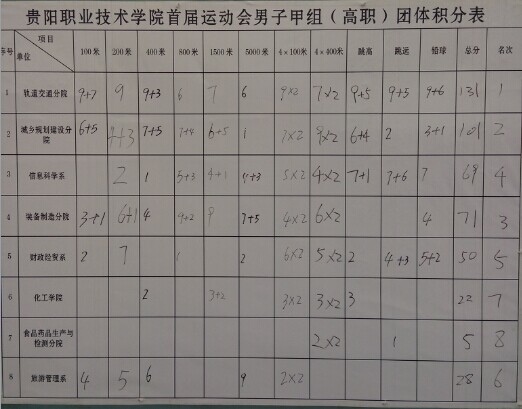 贵阳职业技术学院首届运动会男子甲组（高职）团体积分表
序号 单位 项目 100米 200米 400米 800米 1500米 5000米 4×100米 4×400米 跳高 跳远 铅球 总分 名次
1 轨道交通分院 9+7 9 9+3 6 7 6 9×2 7×2 9+5 9+5 9+6 131 1
2 城乡规划建设分院 6+5 4+3 7+5 7+4 6+5 1 7×2 9×2 6+4 2 3+1 101 2
3 信息科学系 2 1 5+3 4+1 5×2 4×2 7+1 7+6 7 69 4
4 装备制造分院 3+1 6+1 4 9+2 9 7+5 4×2 6×2 4 71 3
5 财政经贸系 2 7 1 2 6×2 5×2 2 4+3 5+2 50 5
6 化工学院 2 3+2 3×2 3×2 3 22 7
7 食品药品生产与检测分院 2×2 1 5 8
8 旅游管理系 4 5 6 9 2×2 28 6